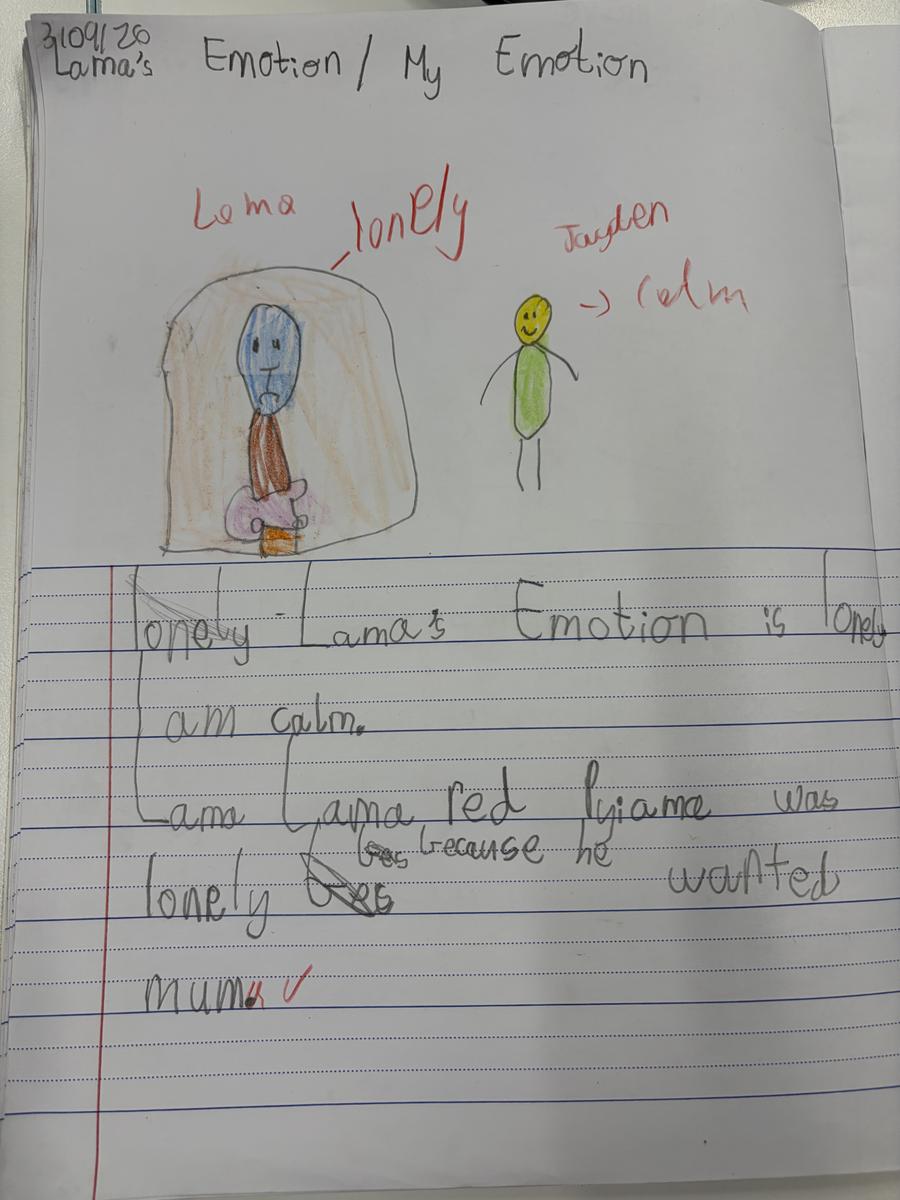 3/09/20
Lama's Emotion / My Emotion
Lama lonely
Jayden
→ Calm
lonely - Lama's Emotion is lonely
I am calm.
Lama Lama red Pyjama was
because he
lonely wanted
muma ✓